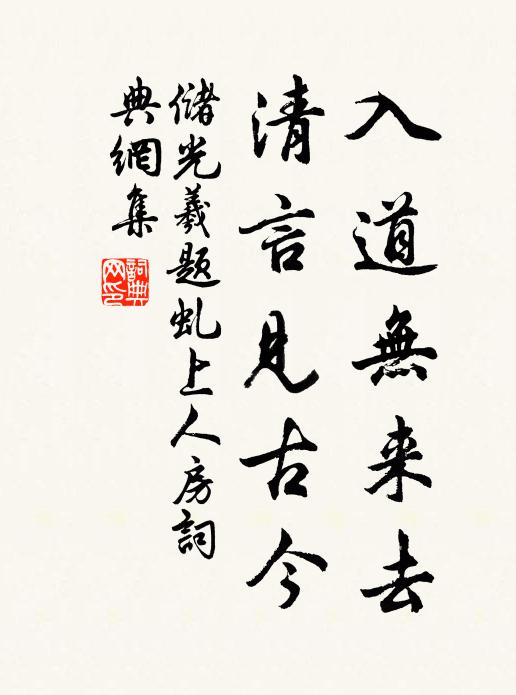 入道無来去
清言見古今
儲光羲題虬上人房詞
典網集
詞典
网印